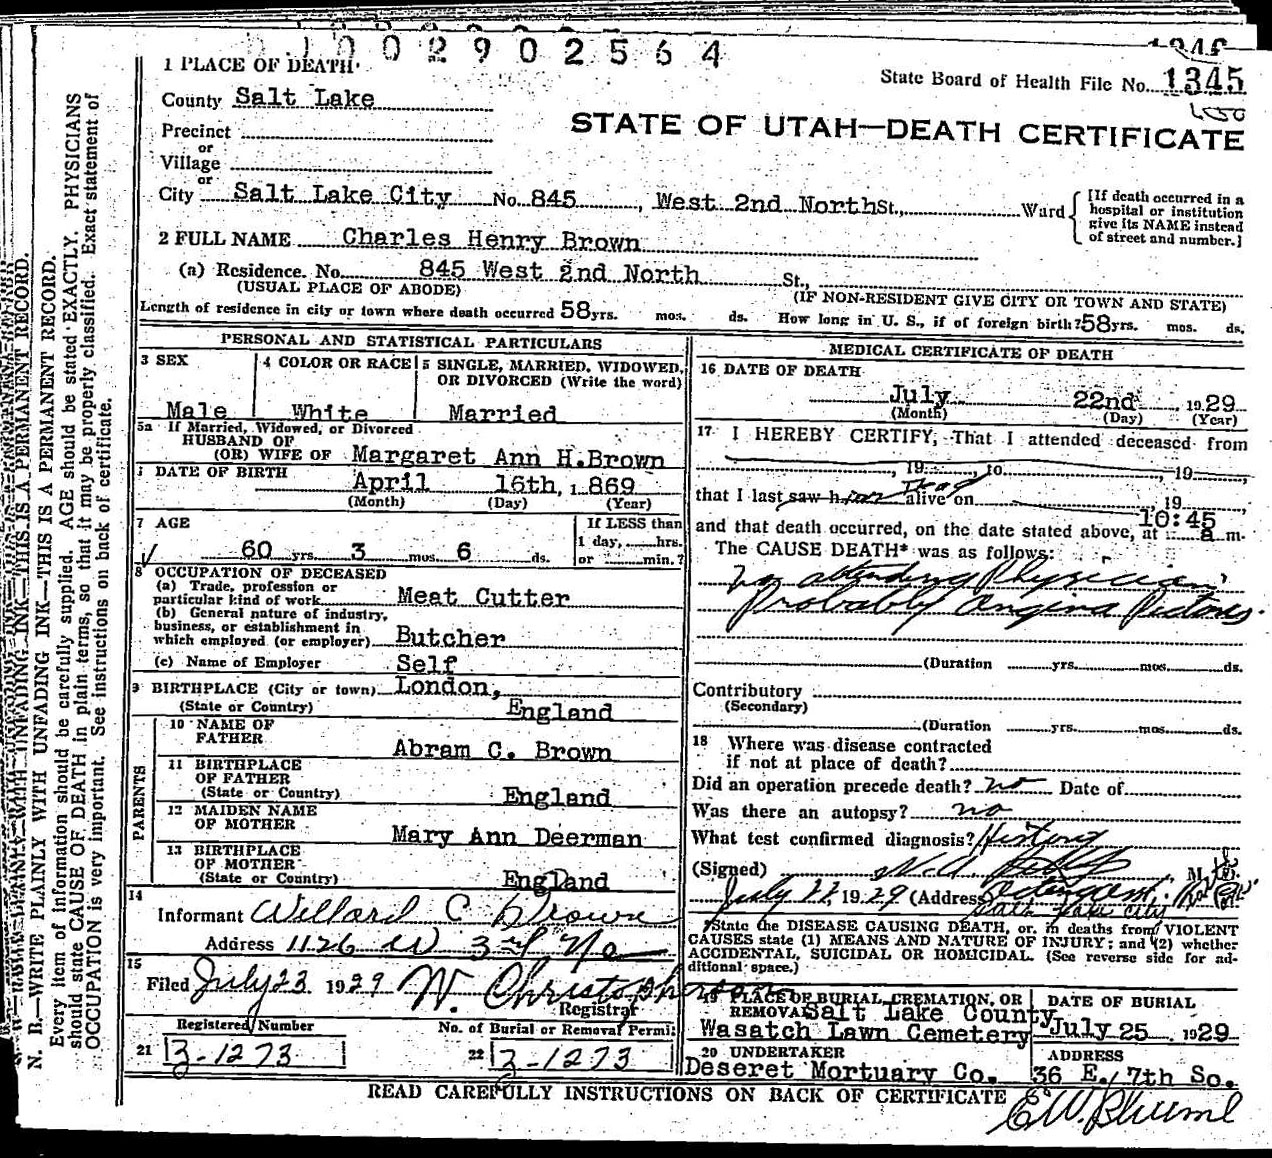 0 1 0 0 2 9 0 2 5 6 4
1346
State Board of Health File No. 1345
STATE OF UTAH—DEATH CERTIFICATE
1 PLACE OF DEATH
County Salt Lake
Precinct
or
Village
or
City Salt Lake City No. 845, West 2nd North St., Ward
[If death occurred in a
hospital or institution
give its NAME instead
of street and number.]
2 FULL NAME Charles Henry Brown
(a) Residence. No. 845 West 2nd North St.,
(USUAL PLACE OF ABODE) (IF NON-RESIDENT GIVE CITY OR TOWN AND STATE)
Length of residence in city or town where death occurred 58 yrs. mos. ds. How long in U. S., if of foreign birth? 58 yrs. mos. ds.
PERSONAL AND STATISTICAL PARTICULARS
3 SEX
Male
4 COLOR OR RACE
White
5 SINGLE, MARRIED, WIDOWED,
OR DIVORCED (Write the word)
Married
5a If Married, Widowed, or Divorced
HUSBAND OF
(OR) WIFE OF Margaret Ann H.Brown
DATE OF BIRTH
April 16th, 1869
(Month) (Day) (Year)
7 AGE
60 yrs. 3 mos. 6 ds.
If LESS than
1 day, hrs.
or min.?
8 OCCUPATION OF DECEASED
(a) Trade, profession or
particular kind of work Meat Cutter
(b) General nature of industry,
business, or establishment in
which employed (or employer) Butcher
(c) Name of Employer Self
9 BIRTHPLACE (City or town) London,
(State or Country) England
PARENTS
10 NAME OF
FATHER Abram C. Brown
11 BIRTHPLACE
OF FATHER
(State or Country) England
12 MAIDEN NAME
OF MOTHER Mary Ann Deerman
13 BIRTHPLACE
OF MOTHER
(State or Country) England
14
Informant Willard C Brown
Address 1126 W 3rd No
15
Filed July 23 1929 W. Christopherson
Registrar
Registered Number
21 3-1273
No. of Burial or Removal Permit
22 3-1273
MEDICAL CERTIFICATE OF DEATH
16 DATE OF DEATH
July 22nd, 1929
(Month) (Day) (Year)
17 I HEREBY CERTIFY, That I attended deceased from
, 19 , to , 19
that I last saw h im Dead alive on 19
and that death occurred, on the date stated above, at 10:45 a m.
The CAUSE DEATH* was as follows:
No attending Physician
Probably Angina Pectoris
(Duration yrs. mos. ds.
Contributory
(Secondary)
(Duration yrs. mos. ds.
18 Where was disease contracted
if not at place of death?
Did an operation precede death? no Date of
Was there an autopsy? no
What test confirmed diagnosis? History
(Signed) M.
July 22 1929 (Address)
Salt Lake City
*State the DISEASE CAUSING DEATH, or, in deaths from VIOLENT
CAUSES state (1) MEANS AND NATURE OF INJURY; and (2) whether
ACCIDENTAL, SUICIDAL OR HOMICIDAL. (See reverse side for ad-
ditional space.)
19 PLACE OF BURIAL, CREMATION, OR
REMOVAL Salt Lake County
Wasatch Lawn Cemetery
DATE OF BURIAL
July 25, 1929
20 UNDERTAKER
Deseret Mortuary Co.
ADDRESS
36 E. 7th So.
READ CAREFULLY INSTRUCTIONS ON BACK OF CERTIFICATE
N. B.—WRITE PLAINLY WITH UNFADING INK—THIS IS A PERMANENT RECORD.
Every item of information should be carefully supplied. AGE should be stated EXACTLY. PHYSICIANS
should state CAUSE OF DEATH in plain terms, so that it may be properly classified. Exact statement of
OCCUPATION is very important. See instructions on back of certificate.